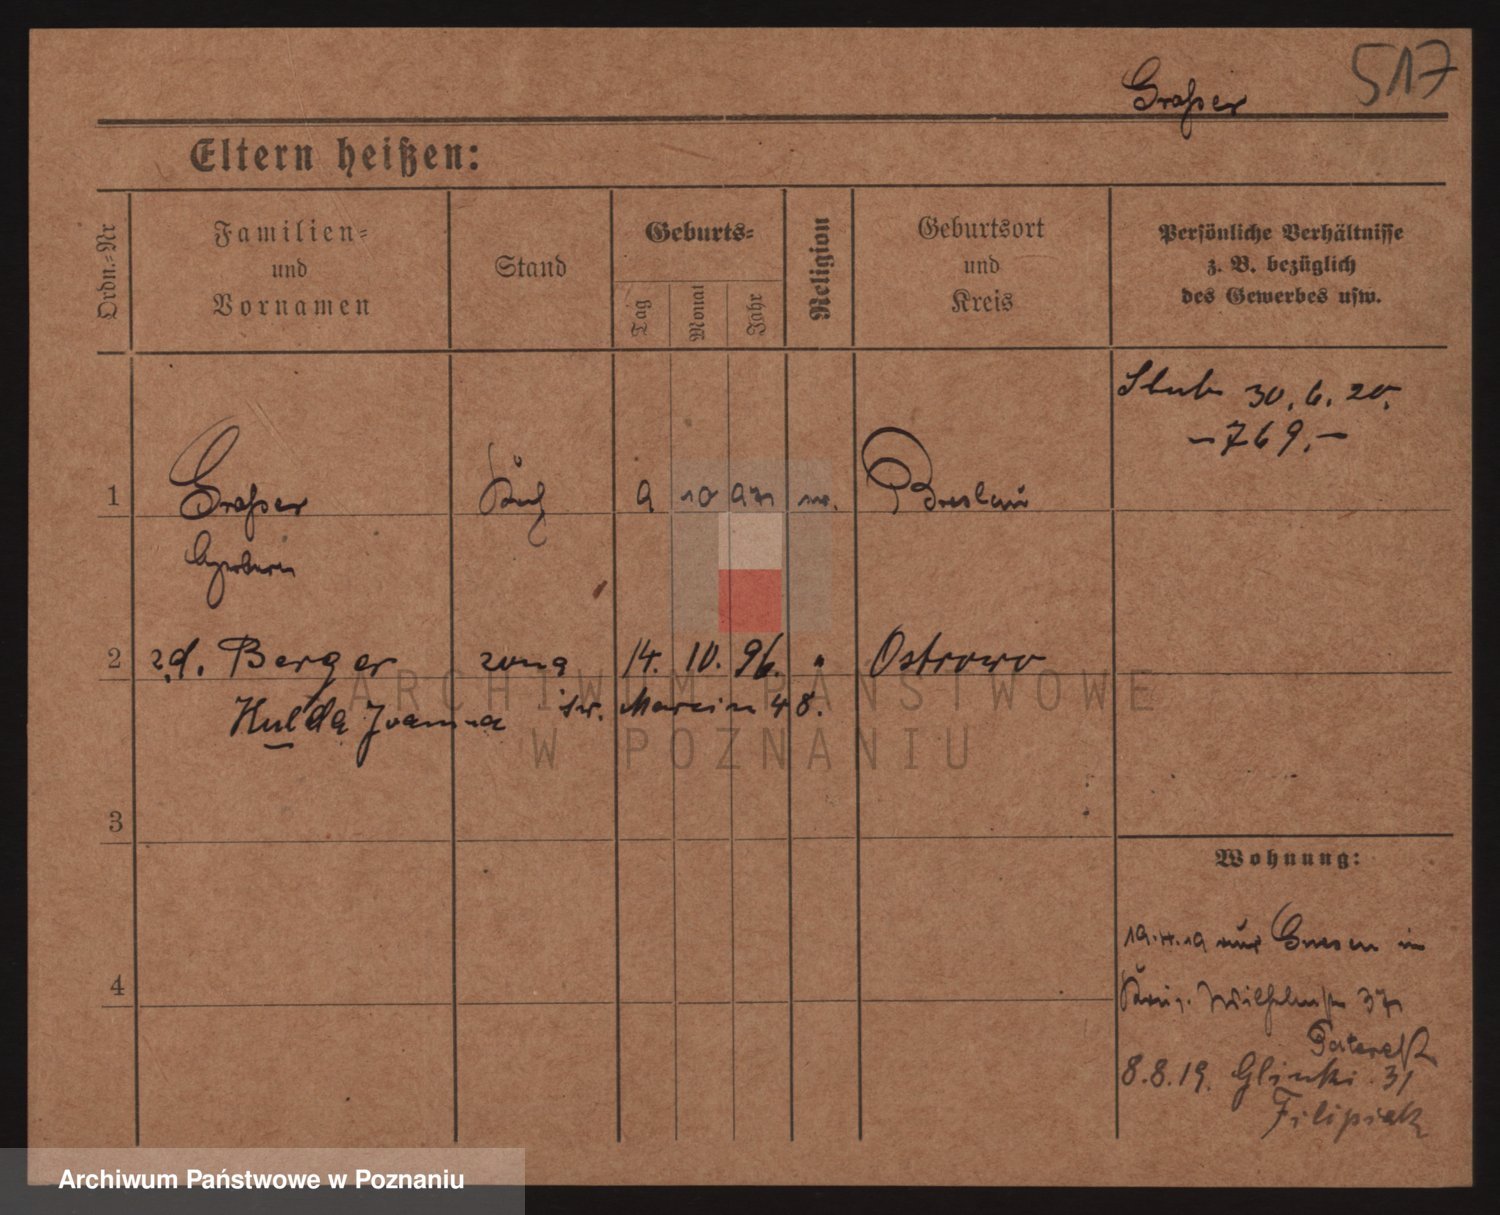 517
Graßer
Eltern heißen:
Ordn.-Nr
Familien-
und
Vornamen
Stand
Geburts-
Tag
Monat
Jahr
Religion
Geburtsort
und
Kreis
Persönliche Verhältnisse
z. B. bezüglich
des Gewerbes usw.
Slub 30.6.20.
-769.-
1 Graßer 9 10 97 Breslau
2 zd. Berger zona 14. 10. 96. " Ostrowo
Hulda Joanna św. Marcin 48.
3
Wohnung:
4
19.4.19 aus Gnesen in
Wilhelmstr 37
8.8.19. Glinki 31
Filipiak
ARCHIWUM PAŃSTWOWE
W POZNANIU
Archiwum Państwowe w Poznaniu